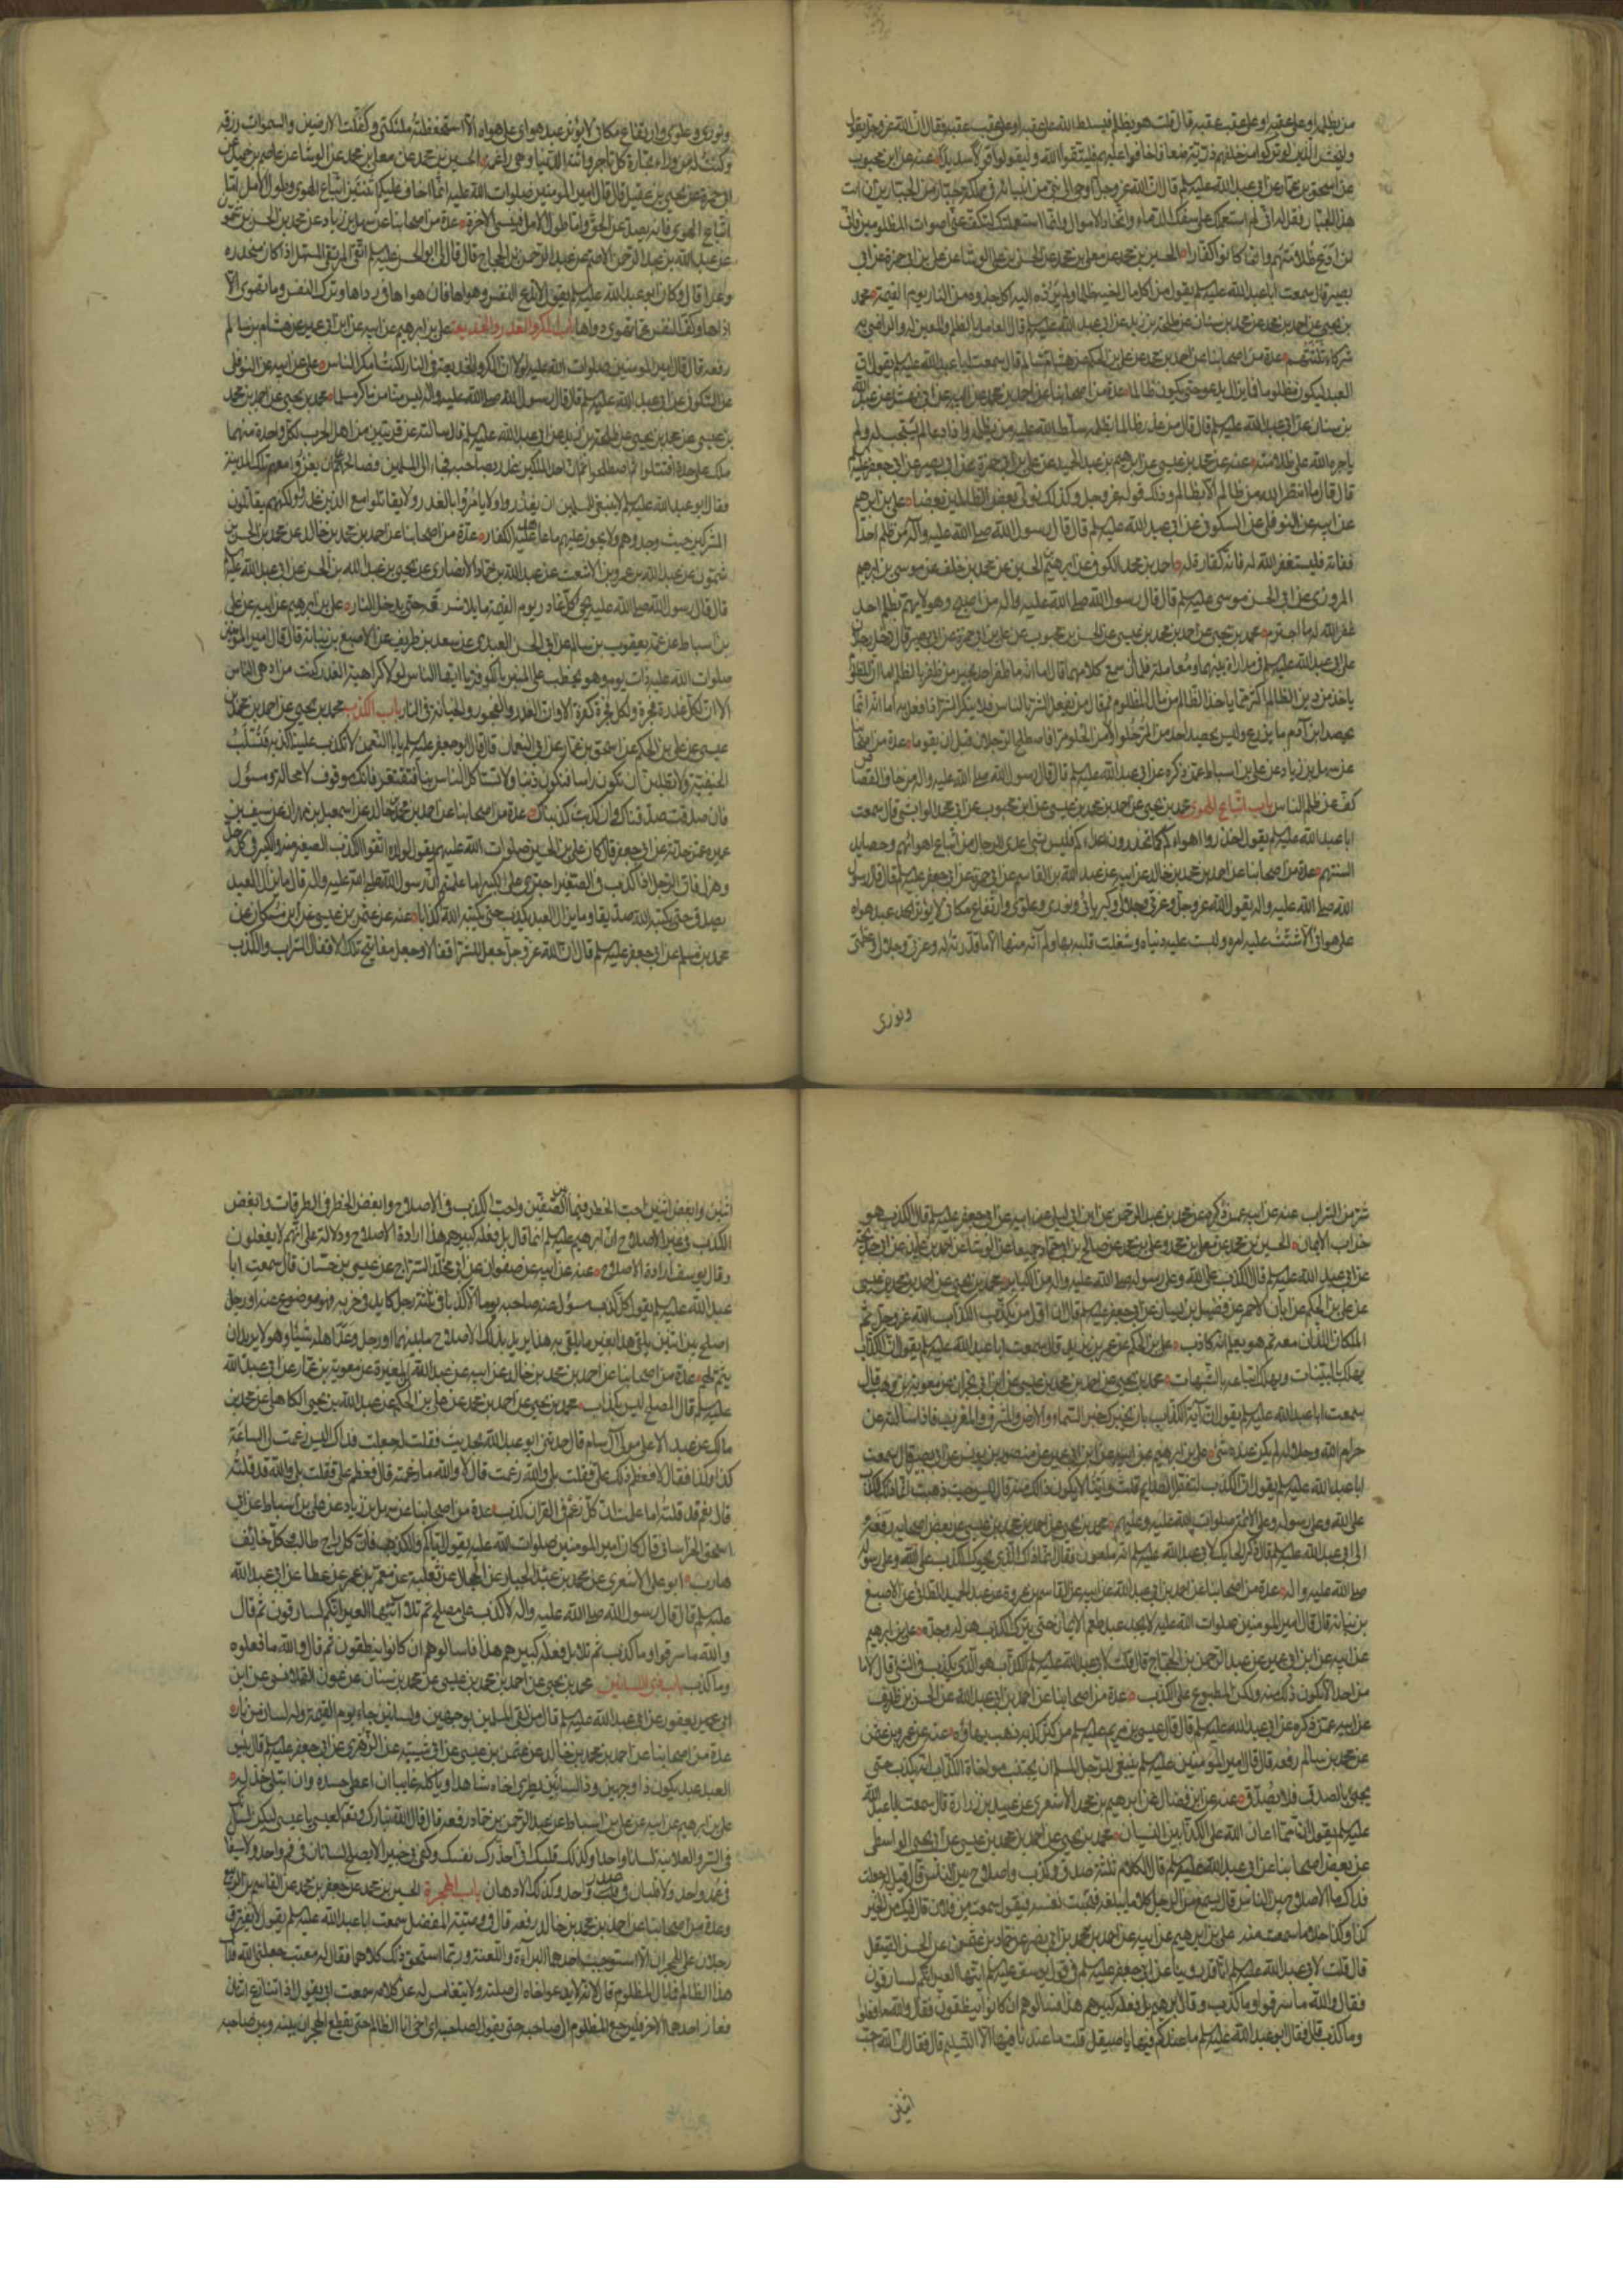 من يظلمه او على عقبه او على عقب عقبه قال قلت هو يظلم فيسلط الله على عقبه او على عقب عقبه فقال ان الله عز وجل يقول
وليخش الذين لو تركوا من خلفهم ذرية ضعافا خافوا عليهم فليتقوا الله وليقولوا قولا سديدا عنه عن ابن محبوب
عن اسحق بن عمار عن ابي عبد الله عليه السلم قال ان الله عز وجل اوحى الى نبي من انبيائه في مملكة جبار من الجبارين ان ائت
هذا الجبار فقل له انني لم استعملك على سفك الدماء واتخاذ الاموال وانما استعملتك لتكف عني اصوات المظلومين فاني
لن ادع ظلامتهم وان كانوا كفارا الحسين بن محمد عن معلى بن محمد عن الحسن بن علي الوشا عن علي بن ابي حمزة عن ابي
بصير قال سمعت ابا عبد الله عليه السلم يقول من اكل مال اخيه ظلما ولم يرده اليه اكل جذوة من النار يوم القيمة محمد
بن يحيى عن احمد بن محمد عن محمد بن سنان عن طلحة بن زيد عن ابي عبد الله عليه السلم قال العامل بالظلم والمعين له والراضي به
شركاء ثلثتهم عدة من اصحابنا عن احمد بن محمد عن علي بن الحكم عن هشام بن سالم قال سمعت ابا عبد الله عليه السلم يقول ان
العبد ليكون مظلوما فما يزال يدعو حتى يكون ظالما عدة من اصحابنا عن احمد بن محمد عن ابيه عن ابي نهشل عن عبد الله
بن سنان عن ابي عبد الله عليه السلم قال قال من عذر ظالما بظلمه سلط الله عليه من يظلمه وان دعا لم يستجب له ولم
ياجره الله على ظلامته عنه عن محمد بن عيسى عن ابرهيم بن عبد الحميد عن علي بن ابي حمزة عن ابي بصير عن ابي جعفر عليه السلم
قال قال ما انتصر الله من ظالم الا بظالم وذلك قوله عز وجل وكذلك نولي بعض الظالمين بعضا علي بن ابرهيم
عن ابيه عن النوفلي عن السكوني عن ابي عبد الله عليه السلم قال قال رسول الله صلى الله عليه واله من ظلم احدا
ففاته فليستغفر الله له فانه كفارة له احمد بن محمد الكوفي عن ابرهيم بن الحسين عن محمد بن خلف عن موسى بن ابرهيم
المروزي عن ابي الحسن موسى عليه السلم قال قال رسول الله صلى الله عليه واله من اصبح وهو لا يهم بظلم احد
غفر الله له ما اجترم محمد بن يحيى عن احمد بن محمد بن عيسى عن الحسن بن محبوب عن علي بن ابي حمزة عن ابي بصير قال دخل رجلان
على ابي عبد الله عليه السلم في مداراة بينهما ومعاملة فلما ان سمع كلامهما قال اما انه ما ظفر احد بخير من ظفر بالظلم اما ان المظلوم
ياخذ من دين الظالم اكثر مما ياخذ الظالم من مال المظلوم ثم قال من يفعل الشر بالناس فلا ينكر الشر اذا فعل به اما انه انما
يحصد ابن آدم ما يزرع وليس يحصد احد من المر حلوا ولا من الحلو مرا فاصطلح الرجلان قبل ان يقوما عدة من اصحابنا
عن سهل بن زياد عن علي بن اسباط عمن ذكره عن ابي عبد الله عليه السلم قال قال رسول الله صلى الله عليه واله من خاف القصاص
كف عن ظلم الناس باب اتباع الهوى محمد بن يحيى عن احمد بن محمد بن عيسى عن ابن محبوب عن ابي محمد الوابشي قال سمعت
ابا عبد الله عليه السلم يقول احذروا اهواءكم كما تحذرون اعداءكم فليس شي اعدى للرجال من اتباع اهوائهم وحصايد
السنتهم عدة من اصحابنا عن احمد بن محمد بن خالد عن ابيه عن عبد الله بن القاسم عن ابي حمزة عن ابي جعفر عليه السلم قال قال رسول
الله صلى الله عليه واله يقول الله عز وجل وعزتي وجلالي وكبريائي ونوري وعلوي وارتفاع مكاني لا يؤثر عبد هواه
على هواي الا شتت عليه امره ولبست عليه دنياه وشغلت قلبه بها ولم آته منها الا ما قدرت له وعزتي وجلالي وعظمتي
ونوري
ونوري وعلوي وارتفاع مكاني لا يؤثر عبد هواي على هواه الا استحفظته ملئكتي وكفلت الارضين والسموات رزقه
وكنت له من وراء تجارة كل تاجر واتته الدنيا وهي راغمة الحسين بن محمد عن معلى بن محمد عن الوشا عن عاصم بن حميد عن
ابي حمزة عن يحيى بن عقيل قال قال امير المومنين صلوات الله عليه انما اخاف عليكم اثنتين اتباع الهوى وطول الامل اما
اتباع الهوى فانه يصد عن الحق واما طول الامل فينسي الاخرة عدة من اصحابنا عن سهل بن زياد عن محمد بن الحسن بن شمون
عن عبد الله بن عبد الرحمن الاصم عن عبد الرحمن بن الحجاج قال قال لي ابو الحسن عليه السلم اتق المرتقى السهل اذا كان منحدره
وعرا قال وكان ابو عبد الله عليه السلم يقول لا تدع النفس وهواها فان هواها في رداها وترك النفس وما تهوى
اذاها وكف النفس عما تهوى دواها باب المكر والغدر والخديعة علي بن ابرهيم عن ابيه عن ابن ابي عمير عن هشام بن سالم
رفعه قال قال امير المومنين صلوات الله عليه لولا ان المكر والخديعة في النار لكنت امكر الناس علي عن ابيه عن النوفلي
عن السكوني عن ابي عبد الله عليه السلم قال قال رسول الله صلى الله عليه واله ليس منا من ماكر مسلما محمد بن يحيى عن احمد بن محمد
بن عيسى عن محمد بن يحيى عن طلحة بن زيد عن ابي عبد الله عليه السلم قال سالته عن قريتين من اهل الحرب لكل واحدة منهما
ملك على حدة اقتتلوا ثم اصطلحوا ثم ان احد الملكين غدر بصاحبه فجاء الى المسلمين فصالحهم على ان يغزوا معهم تلك المدينة
فقال ابو عبد الله عليه السلم لا ينبغي للمسلمين ان يغدروا ولا يامروا بالغدر ولا يقاتلوا مع الذين غدروا ولكنهم يقاتلون
المشركين حيث وجدوهم ولا يجوز عليهم ما عاهد عليه الكفار عدة من اصحابنا عن احمد بن محمد بن خالد عن محمد بن الحسن بن
شمون عن عبد الله بن عمرو بن الاشعث عن عبد الله بن حماد الانصاري عن يحيى بن عبد الله بن الحسن عن ابي عبد الله عليه السلم
قال قال رسول الله صلى الله عليه يجي كل غادر يوم القيمة مايلا شدقه حتى يدخل النار علي بن ابرهيم عن ابيه عن علي
بن اسباط عن عمه يعقوب بن سالم عن ابي الحسن العبدي عن سعد بن طريف عن الاصبغ بن نباتة قال قال امير المومنين
صلوات الله عليه ذات يوم وهو يخطب على المنبر بالكوفة يا ايها الناس لولا كراهية الغدر كنت من ادهى الناس
الا ان لكل غدرة فجرة ولكل فجرة كفرة الا وان الغدر والفجور والخيانة في النار باب الكذب محمد بن يحيى عن احمد بن محمد بن
عيسى عن علي بن الحكم عن اسحق بن عمار عن ابي النعمان قال قال ابو جعفر عليه السلم يا ابا النعمن لا تكذب علينا كذبة فتسلب
الحنيفية ولا تطلبن ان تكون راسا فتكون ذنبا ولا تستاكل الناس بنا فتفتقر فانك موقوف لا محالة ومسؤل
فان صدقت صدقناك وان كذبت كذبناك عدة من اصحابنا عن احمد بن محمد بن خالد عن اسمعيل بن مهران عن سيف بن
عميرة عمن حدثه عن ابي جعفر قال كان علي بن الحسين صلوات الله عليهم يقول لولده اتقوا الكذب الصغير منه والكبير في كل جد
وهزل فان الرجل اذا كذب في الصغير اجترى على الكبير اما علمتم ان رسول الله صلى الله عليه واله قال ما يزال العبد
يصدق حتى يكتبه الله صديقا وما يزال العبد يكذب حتى يكتبه الله كذابا عنه عن عثمن بن عيسى عن ابن مسكان عن
محمد بن مسلم عن ابي جعفر عليه السلم قال ان الله عز وجل جعل للشر اقفالا وجعل مفاتيح تلك الاقفال الشراب والكذب
شر من الشراب عنه عن ابيه عمن ذكره عن محمد بن عبد الرحمن بن ابي ليلى عن ابيه عن ابي جعفر عليه السلم قال الكذب هو
خراب الايمان الحسين بن محمد عن معلى بن محمد وعلي بن محمد عن صالح بن ابي حماد جميعا عن الوشا عن احمد بن عايذ عن ابي خديجة
عن ابي عبد الله عليه السلم قال الكذب على الله وعلى رسوله صلى الله عليه واله من الكباير محمد بن يحيى عن احمد بن محمد بن عيسى
عن علي بن الحكم عن ابان الاحمر عن فضيل بن يسار عن ابي جعفر عليه السلم قال ان اول من يكذب الكذاب الله عز وجل ثم
الملكان اللذان معه ثم هو يعلم انه كاذب علي بن الحكم عن عمر بن يزيد قال سمعت ابا عبد الله عليه السلم يقول ان الكذاب
يهلك بالبينات ويهلك اتباعه بالشبهات محمد بن يحيى عن احمد بن محمد بن عيسى عن ابن ابي نجران عن معوية بن وهب قال
سمعت ابا عبد الله عليه السلم يقول ان آية الكذاب بان يخبرك خبر السماء والارض والمشرق والمغرب فاذا سالته عن
حرام الله وحلاله لم يكن عنده شي علي بن ابرهيم عن ابيه عن ابن ابي عمير عن منصور بن يونس عن ابي بصير قال سمعت
ابا عبد الله عليه السلم يقول ان الكذبة لتفطر الصايم قلت واينا لا يكون ذلك منه قال ليس حيث ذهبت انما ذلك الكذب
على الله وعلى رسوله وعلى الائمة صلوات الله عليه وعليهم محمد بن يحيى عن احمد بن محمد بن عيسى عن بعض اصحابه رفعه
الى ابي عبد الله عليه السلم قال ذكر الحايك لابي عبد الله عليه السلم انه ملعون فقال انما ذاك الذي يحوك الكذب على الله وعلى رسوله
صلى الله عليه واله عدة من اصحابنا عن احمد بن ابي عبد الله عن ابيه عن القاسم بن عروة عن عبد الحميد الطائي عن الاصبغ
بن نباتة قال قال امير المومنين صلوات الله عليه لا يجد عبد طعم الايمان حتى يترك الكذب هزله وجده علي بن ابرهيم
عن ابيه عن ابن ابي عمير عن عبد الرحمن بن الحجاج قال قلت لابي عبد الله عليه السلم الكذاب هو الذي يكذب في الشي قال لا ما
من احد الا يكون ذلك منه ولكن المطبوع على الكذب عدة من اصحابنا عن احمد بن ابي عبد الله عن الحسن بن ظريف
عن ابيه عمن ذكره عن ابي عبد الله عليه السلم قال قال عيسى بن مريم عليه السلم من كثر كذبه ذهب بهاؤه عنه عن عمرو بن عثمن
عن محمد بن سالم رفعه قال قال امير المومنين عليه السلم ينبغي للرجل المسلم ان يجتنب مواخاة الكذاب انه يكذب حتى
يجيء بالصدق فلا يصدق عنه عن ابن فضال عن ابرهيم بن محمد الاشعري عن عبيد بن زرارة قال سمعت ابا عبد الله
عليه السلم يقول ان مما اعان الله على الكذابين النسيان محمد بن يحيى عن احمد بن محمد بن عيسى عن ابي يحيى الواسطي
عن بعض اصحابنا عن ابي عبد الله عليه السلم قال الكلام ثلثة صدق وكذب واصلاح بين الناس قال قيل له جعلت
فداك ما الاصلاح بين الناس قال تسمع من الرجل كلاما يبلغه فتخبث نفسه فيقول سمعت من فلان قال فيك من الخير
كذا وكذا خلاف ما سمعت منه علي بن ابرهيم عن ابيه عن احمد بن محمد بن ابي نصر عن حماد بن عثمن عن الحسن الصيقل
قال قلت لابي عبد الله عليه السلم انا قد روينا عن ابي جعفر عليه السلم في قول يوسف عليه السلم ايتها العير انكم لسارقون
فقال والله ما سرقوا وما كذب وقال ابرهيم بل فعله كبيرهم هذا فسئلوهم ان كانوا ينطقون فقال والله ما فعلوا
وما كذب قال فقال ابو عبد الله عليه السلم ما عندكم فيها يا صيقل قلت ما عندنا فيها الا التسليم قال فقال ان الله احب
اثنين
اثنين وابغض اثنين احب الخطر فيما بين الصفين واحب الكذب في الاصلاح وابغض الخطر في الطرقات وابغض
الكذب في غير الاصلاح ان ابرهيم عليه السلم انما قال بل فعله كبيرهم هذا ارادة الاصلاح ودلالة على انهم لا يفعلون
وقال يوسف ارادة الاصلاح عنه عن ابيه عن صفوان عن ابي مخلد السراج عن عيسى بن حسان قال سمعت ابا
عبد الله عليه السلم يقول كل كذب مسؤل عنه صاحبه يوما الا كذبا في ثلثة رجل كايد في حربه فهو موضوع عنه او رجل
اصلح بين اثنين يلقى هذا بغير ما يلقى به هذا يريد بذلك الاصلاح ما بينهما او رجل وعد اهله شيئا وهو لا يريد ان
يتم لهم عدة من اصحابنا عن احمد بن محمد بن خالد عن ابيه عن عبد الله بن المغيرة عن معوية بن عمار عن ابي عبد الله
عليه السلم قال المصلح ليس بكذاب محمد بن يحيى عن احمد بن محمد عن علي بن الحكم عن عبد الله بن يحيى الكاهلي عن محمد بن
مالك عن عبد الاعلى مولى آل سام قال حدثني ابو عبد الله بحديث فقلت له جعلت فداك اليس زعمت لي الساعة
كذا وكذا فقال لا فعظم ذلك علي فقلت بلى والله زعمت قال لا والله ما زعمته قال فعظم علي فقلت بلى والله قد قلته
قال نعم قد قلته اما علمت ان كل زعم في القران كذب عدة من اصحابنا عن سهل بن زياد عن علي بن اسباط عن ابي
اسحق الخراساني قال كان امير المومنين صلوات الله عليه يقول اياكم والكذب فان كل راج طالب وكل خائف
هارب ابو علي الاشعري عن محمد بن عبد الجبار عن الحجال عن ثعلبة عن معمر بن عمرو عن عطا عن ابي عبد الله
عليه السلم قال قال رسول الله صلى الله عليه واله لا كذب على مصلح ثم تلا ايتها العير انكم لسارقون ثم قال
والله ما سرقوا وما كذب ثم تلا بل فعله كبيرهم هذا فاسالوهم ان كانوا ينطقون ثم قال والله ما فعلوه
وما كذب باب ذي اللسانين محمد بن يحيى عن احمد بن محمد بن عيسى عن محمد بن سنان عن عون القلانسي عن ابن
ابي يعفور عن ابي عبد الله عليه السلم قال من لقي المسلمين بوجهين ولسانين جاء يوم القيمة وله لسانان من نار
عدة من اصحابنا عن احمد بن محمد بن خالد عن عثمن بن عيسى عن ابي شيبة عن الزهري عن ابي جعفر عليه السلم قال بئس
العبد عبد يكون ذا وجهين وذا لسانين يطري اخاه شاهدا وياكله غايبا ان اعطي حسده وان ابتلي خذله
علي بن ابرهيم عن ابيه عن علي بن اسباط عن عبد الرحمن بن حماد رفعه قال قال الله تبارك وتعالى لعيسى يا عيسى ليكن لسانك
في السر والعلانية لسانا واحدا وكذلك قلبك اني احذرك نفسك وكفى بي خبيرا لا يصلح لسانان في فم واحد ولا سيفان
في غمد واحد ولا قلبان في صدر واحد وكذلك الاذهان باب الهجرة الحسين بن محمد عن جعفر بن محمد عن القاسم بن الربيع
وعدة من اصحابنا عن احمد بن محمد بن خالد رفعه قال في وصية المفضل سمعت ابا عبد الله عليه السلم يقول لا يفترق
رجلان على الهجران الا استوجب احدهما البراءة واللعنة وربما استحق ذلك كلاهما فقال له معتب جعلني الله فداك
هذا الظالم فما بال المظلوم قال لانه لا يدعو اخاه الى صلته ولا يتغامس له عن كلامه سمعت ابي يقول اذا تنازع اثنان
فعاز احدهما الاخر فليرجع المظلوم الى صاحبه حتى يقول لصاحبه اي اخي انا الظالم حتى يقطع الهجران بينه وبين صاحبه